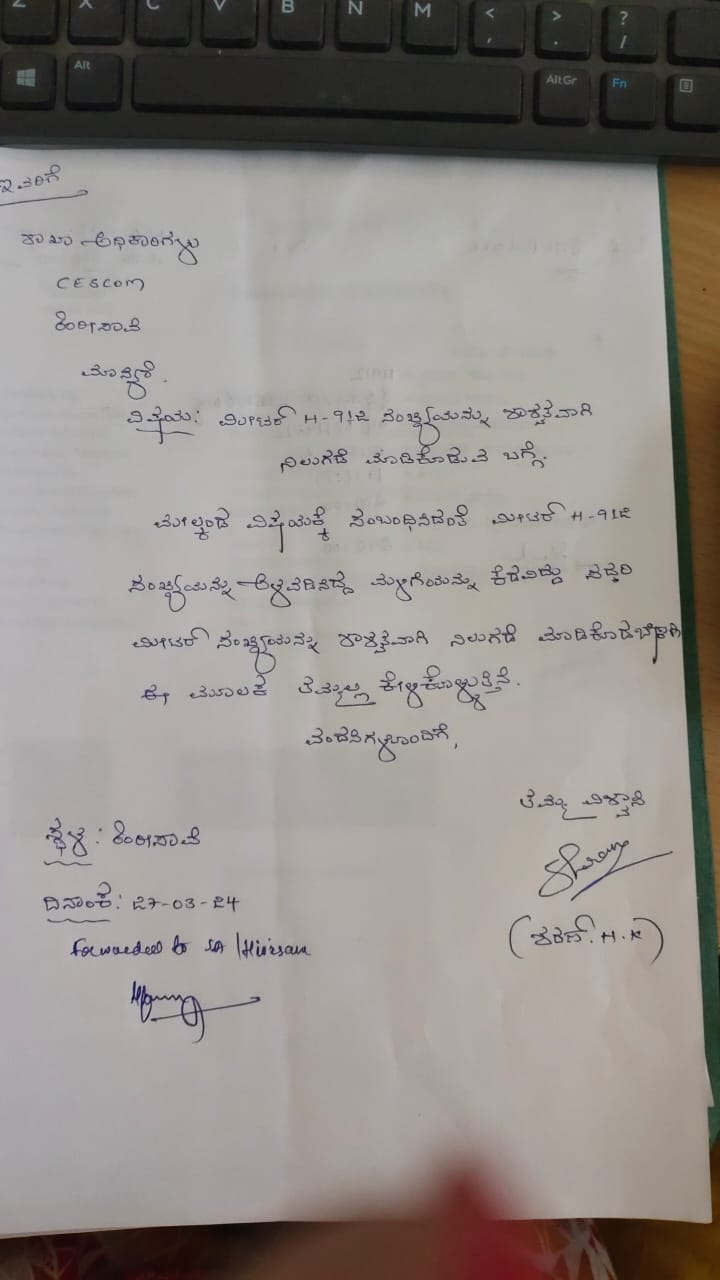 Z X C V B N M < , > . ? /
Alt AltGr Fn
ಇವರಿಗೆ
ಶಾಖಾ ಅಧಿಕಾರಿಗಳು
CESCOM
ಹಿರೀಸಾವೆ
ಮಾನ್ಯರೆ.
ವಿಷಯ: ಮೀಟರ್ H-912 ಸಂಖ್ಯೆಯನ್ನು ಶಾಶ್ವತವಾಗಿ
ನಿಲುಗಡೆ ಮಾಡಿಕೊಡುವ ಬಗ್ಗೆ.
ಮೇಲ್ಕಂಡ ವಿಷಯಕ್ಕೆ ಸಂಬಂಧಿಸಿದಂತೆ ಮೀಟರ್ H-912
ಸಂಖ್ಯೆಯನ್ನು ಅಳವಡಿಸಿದ್ದ ಮಳಿಗೆಯನ್ನು ಕೆಡವಿದ್ದು ಸದ್ದರಿ
ಮೀಟರ್ ಸಂಖ್ಯೆಯನ್ನು ಶಾಶ್ವತವಾಗಿ ನಿಲುಗಡೆ ಮಾಡಿಕೊಡಬೇಕಾಗಿ
ಈ ಮೂಲಕ ತಮ್ಮಲ್ಲಿ ಕೇಳಿಕೊಳ್ಳುತ್ತೇನೆ.
ವಂದನೆಗಳೊಂದಿಗೆ,
ತಮ್ಮ ವಿಶ್ವಾಸಿ
ಸ್ಥಳ: ಹಿರೀಸಾವೆ
ದಿನಾಂಕ: 27-03-24
(ಶರಣ್. H.K)
Forwarded to SA /Hirisave